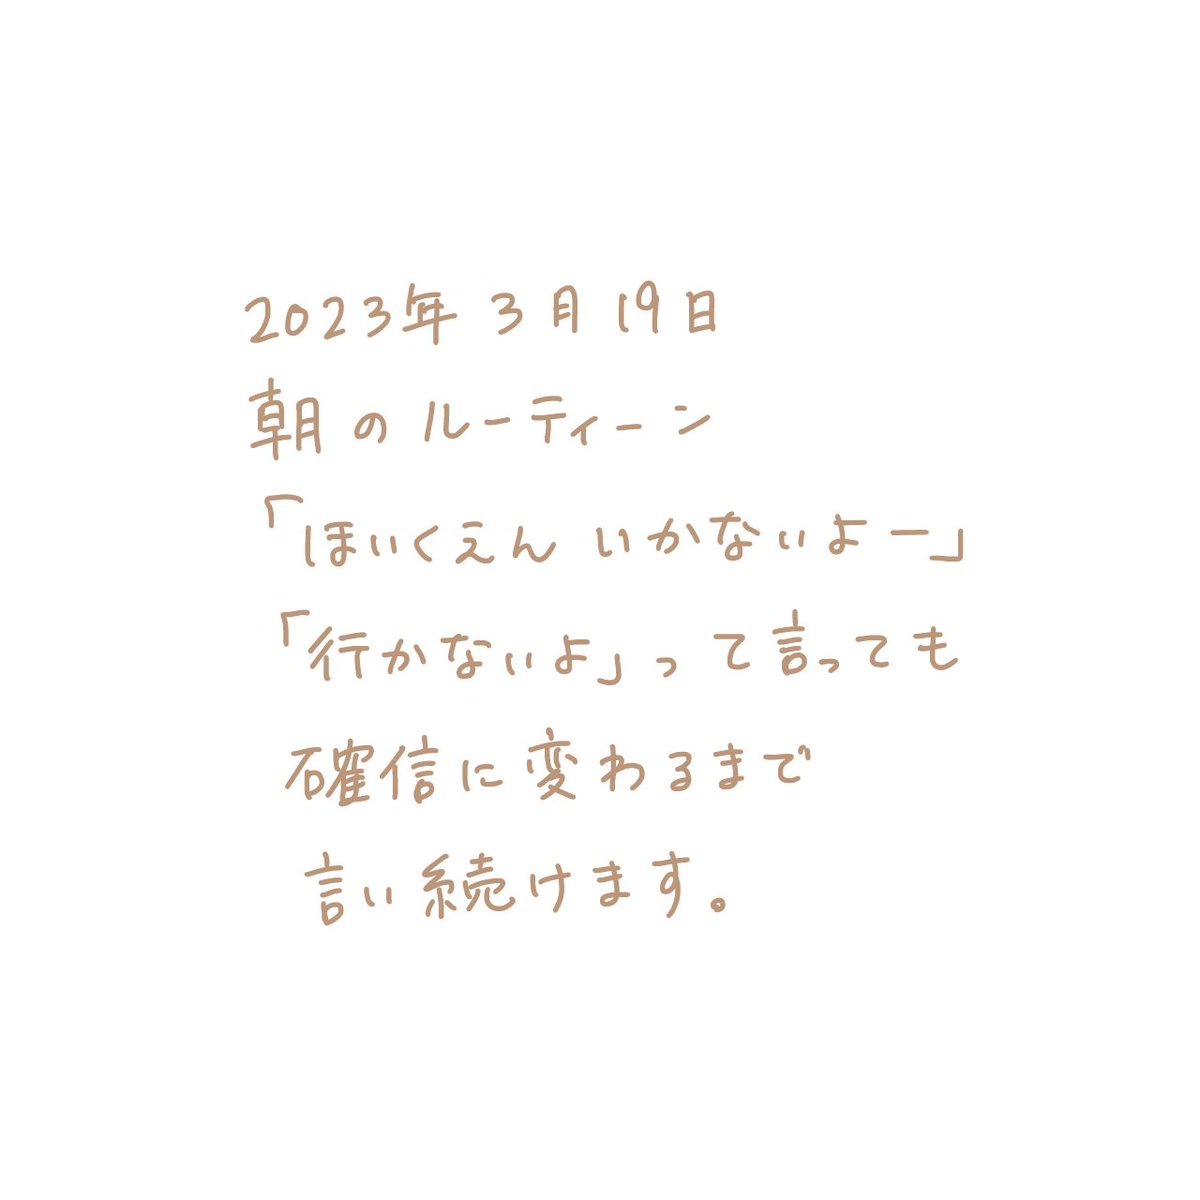 2023年3月19日
朝のルーティーン
「ほいくえん いかないよー」
「行かないよ」って言っても
確信に変わるまで
言い続けます。